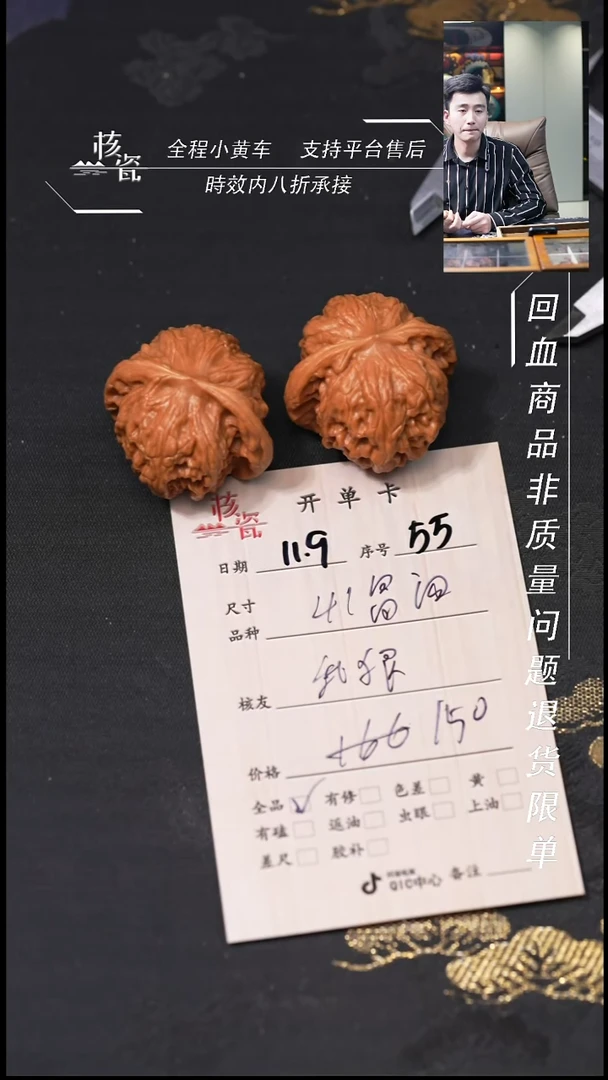 核瓷
全程小黄车 支持平台售后
時效内八折承接
回血商品非质量问题退货限单
核瓷
开单卡
日期 11.9 序号 55
尺寸 41
品种
核友
价格 +66 150
全品 ✓ 有修 色差 黄
有磕 返油 虫眼 上油
差尺 胶补
QIC中心 备注